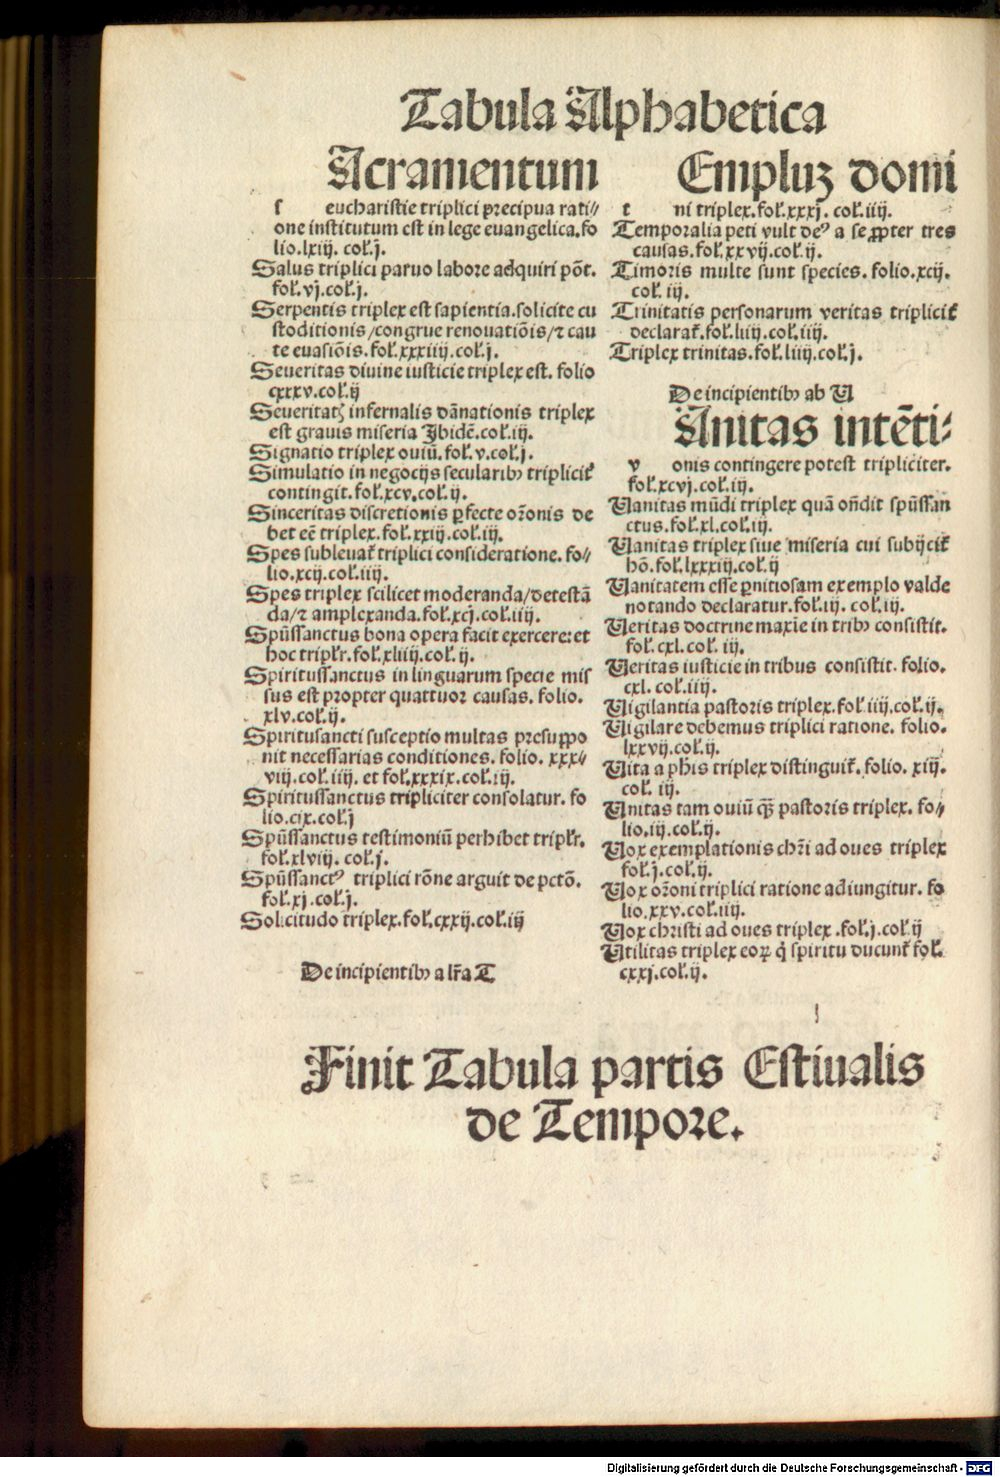 Tabula Alphabetica
Acramentum
ſ euchariſtie triplici precipua rati⸗
one inſtitutum eſt in lege euangelica.fo
lio.lxiij. col.j.
Salus triplici paruo labore adquiri põt.
fol.vj.col.j.
Serpentis triplex eſt sapientia.ſolicite cu
ſtoditionis/congrue renouatiõis/⁊ cau
te euaſiõis.fol.xxxiiij.col.j.
Seueritas diuine iuſticie triplex eſt. folio
cxxxv.col.ij
Seueritatꝭ infernalis dãnationis triplex
eſt grauis miſeria Ibidẽ.col.iij.
Signatio triplex ouiũ.fol.v.col.j.
Simulatio in negocijs ſecularibꝫ triplicit̃
contingit.fol.xcv.col.ij.
Sinceritas diſcretionis ꝑfecte oꝛõnis de
bet eẽ triplex.fol.xxij.col.iij.
Spes ſubleuat̃ triplici conſideratione. fo⸗
lio.xcij.col.iiij.
Spes triplex ſcilicet moderanda/deteſtã
da/⁊ amplexanda.fol.xcj.col.iiij.
Spũſſanctus bona opera facit exercere:et
hoc tripľr.fol.xliij.col.ij.
Spirituſſanctus in linguarum ſpecie miſ
ſus eſt propter quattuoꝛ cauſas. folio.
xlv.col.ij.
Spirituſancti ſuſceptio multas preſuppo
nit neceſſarias conditiones. folio. xxx⸗
viij.col.iiij. et fol.xxxix.col.iij.
Spirituſſanctus tripliciter conſolatur. fo
lio.cix.col.j
Spũſſanctus teſtimoniũ perhibet tripľr.
fol.xlviij. col.j.
Spũſſanctꝰ triplici rõne arguit de pctõ.
fol.xj.col.j.
Solicitudo triplex.fol.cxxij.col.iij
De incipientibꝫ a lr̃a T
Empluꝫ domi
t ni triplex.fol.xxxj. col.iiij.
Temporalia peti vult deꝰ a ſe ꝓpter tres
cauſas.fol.xxvij.col.ij.
Timoris multe ſunt ſpecies. folio.xcij.
col. iij.
Trinitatis perſonarum veritas triplicit̃
declarat̃.fol.liij.col.iiij.
Triplex trinitas.fol.liij.col.j.
De incipientibꝫ ab U
Anitas intẽti⸗
v onis contingere poteſt tripliciter.
fol.xcvj.col.iij.
Uanitas mũdi triplex quã oñdit ſpũſſan
ctus.fol.xl.col.iij.
Uanitas triplex ſiue miſeria cui ſubijcit̃
hõ.fol.lxxxiij.col.ij
Uanitatem eſſe ꝑnitioſam exemplo valde
notando declaratur.fol.iij. col.iij.
Ueritas doctrine maxĩe in tribꝫ conſiſtit.
fol.cxl.col. iij.
Ueritas iuſticie in tribus conſiſtit. folio.
cxl. col.iiij.
Uigilantia paſtoris triplex.fol.iiij.col.ij.
Uigilare debemus triplici ratione. folio.
lxxvij.col.ij.
Uita a ph̃is triplex diſtinguit̃. folio. xiij.
col. iij.
Unitas tam ouiũ qꝫ̃ paſtoris triplex. fo⸗
lio.iij.col.ij.
Uox exemplationis chr̃i ad oues triplex
fol.j.col.ij.
Uox oꝛõni triplici ratione adiungitur. fo
lio.xxv.col.iiij.
Uox chriſti ad oues triplex.fol.j.col.ij
Utilitas triplex eoꝝ q̃ ſpiritu ducunt̃ fol.
cxxj.col.ij.
Finit Tabula partis Eſtiualis
de Tempoꝛe.
Digitalisierung gefördert durch die Deutsche Forschungsgemeinschaft - DFG